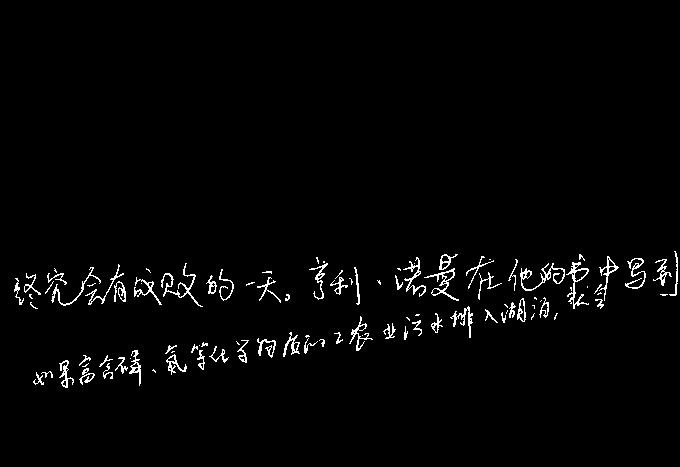 终究会有成败的一天。亨利·诺曼在他的书中写到
如果富含磷、氮等化学物质的工农业污水排入湖泊,就会